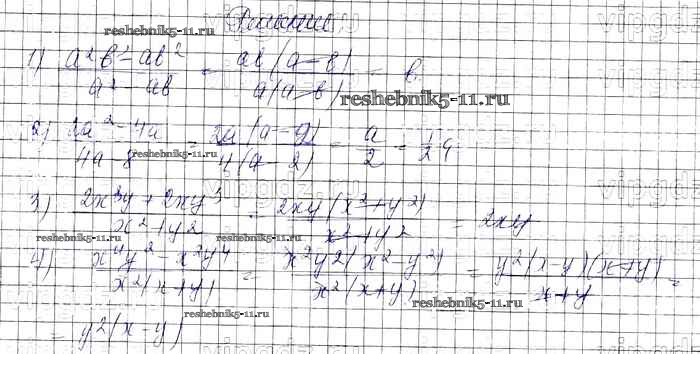 Решение
reshebnik5-11.ru
1) (a²b - ab²)/(a² - ab) = ab(a-b)/a(a-b) = b.
reshebnik5-11.ru
2) (2a² - 4a)/(4a - 8) = 2a(a-2)/4(a-2) = a/2 = 1/2 a
reshebnik5-11.ru
3) (2x³y + 2xy³)/(x² + y²) = 2xy(x² + y²)/(x² + y²) = 2xy
reshebnik5-11.ru
reshebnik5-11.ru
4) (x⁴y² - x²y⁴)/x²(x+y) = x²y²(x² - y²)/x²(x+y) = y²(x-y)(x+y)/(x+y) =
reshebnik5-11.ru
reshebnik5-11.ru
= y²(x-y)